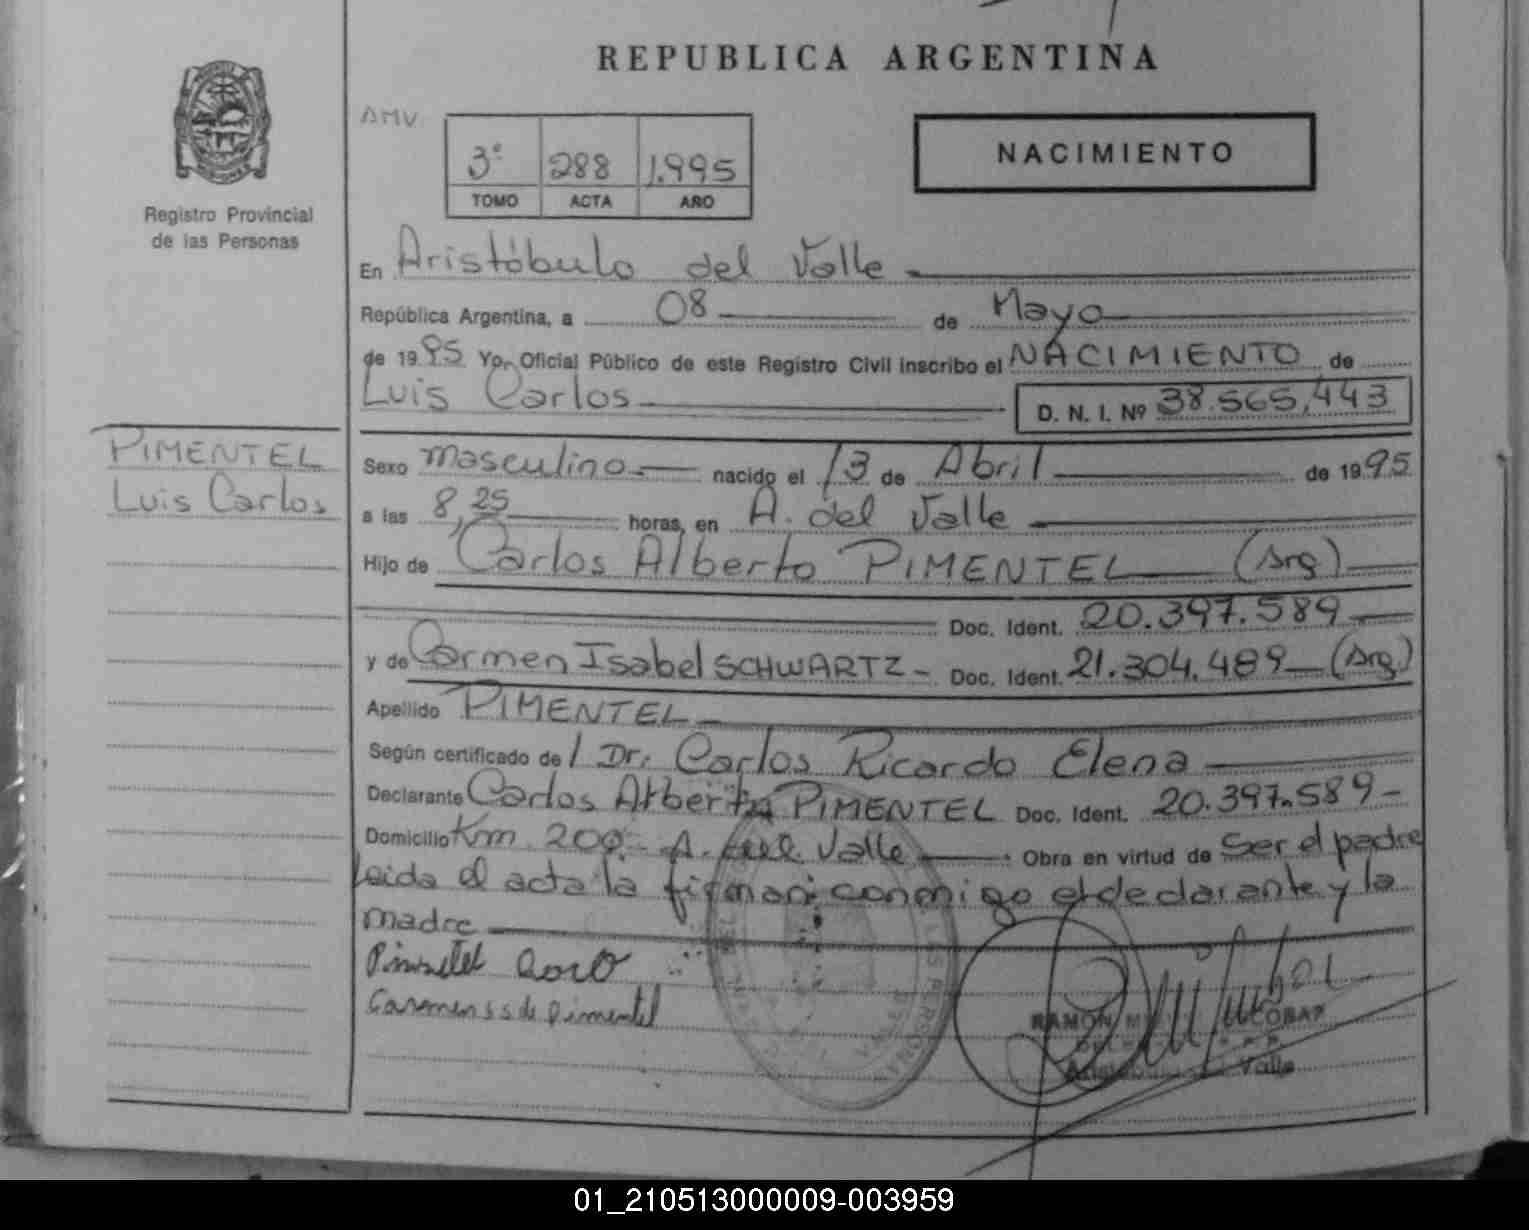 REPUBLICA ARGENTINA
AMV
3º 288 1.995
TOMO ACTA AÑO
NACIMIENTO
MISIONES
Registro Provincial
de las Personas
En Aristóbulo del Valle
República Argentina, a 08 de Mayo
de 1995 Yo, Oficial Público de este Registro Civil inscribo el NACIMIENTO de
Luis Carlos D. N. I. Nº 38.565,443
PIMENTEL
Luis Carlos
Sexo masculino nacido el 13 de Abril de 1995
a las 8,25 horas, en A. del Valle
Hijo de Carlos Alberto PIMENTEL (Arg)
Doc. Ident. 20.397.589
y de Carmen Isabel SCHWARTZ - Doc. Ident. 21.304.489 (Arg)
Apellido PIMENTEL
Según certificado de / Dr. Carlos Ricardo Elena
Declarante Carlos Alberto PIMENTEL Doc. Ident. 20.397.589-
Domicilio Km. 200.- A. del Valle . Obra en virtud de Ser el padre
Leida el acta la firman conmigo el declarante y la
madre
Pimentel
Carmen S de Pimentel
LAS PERSONAS
RAMON ESCOBAR
Valle
01_210513000009-003959